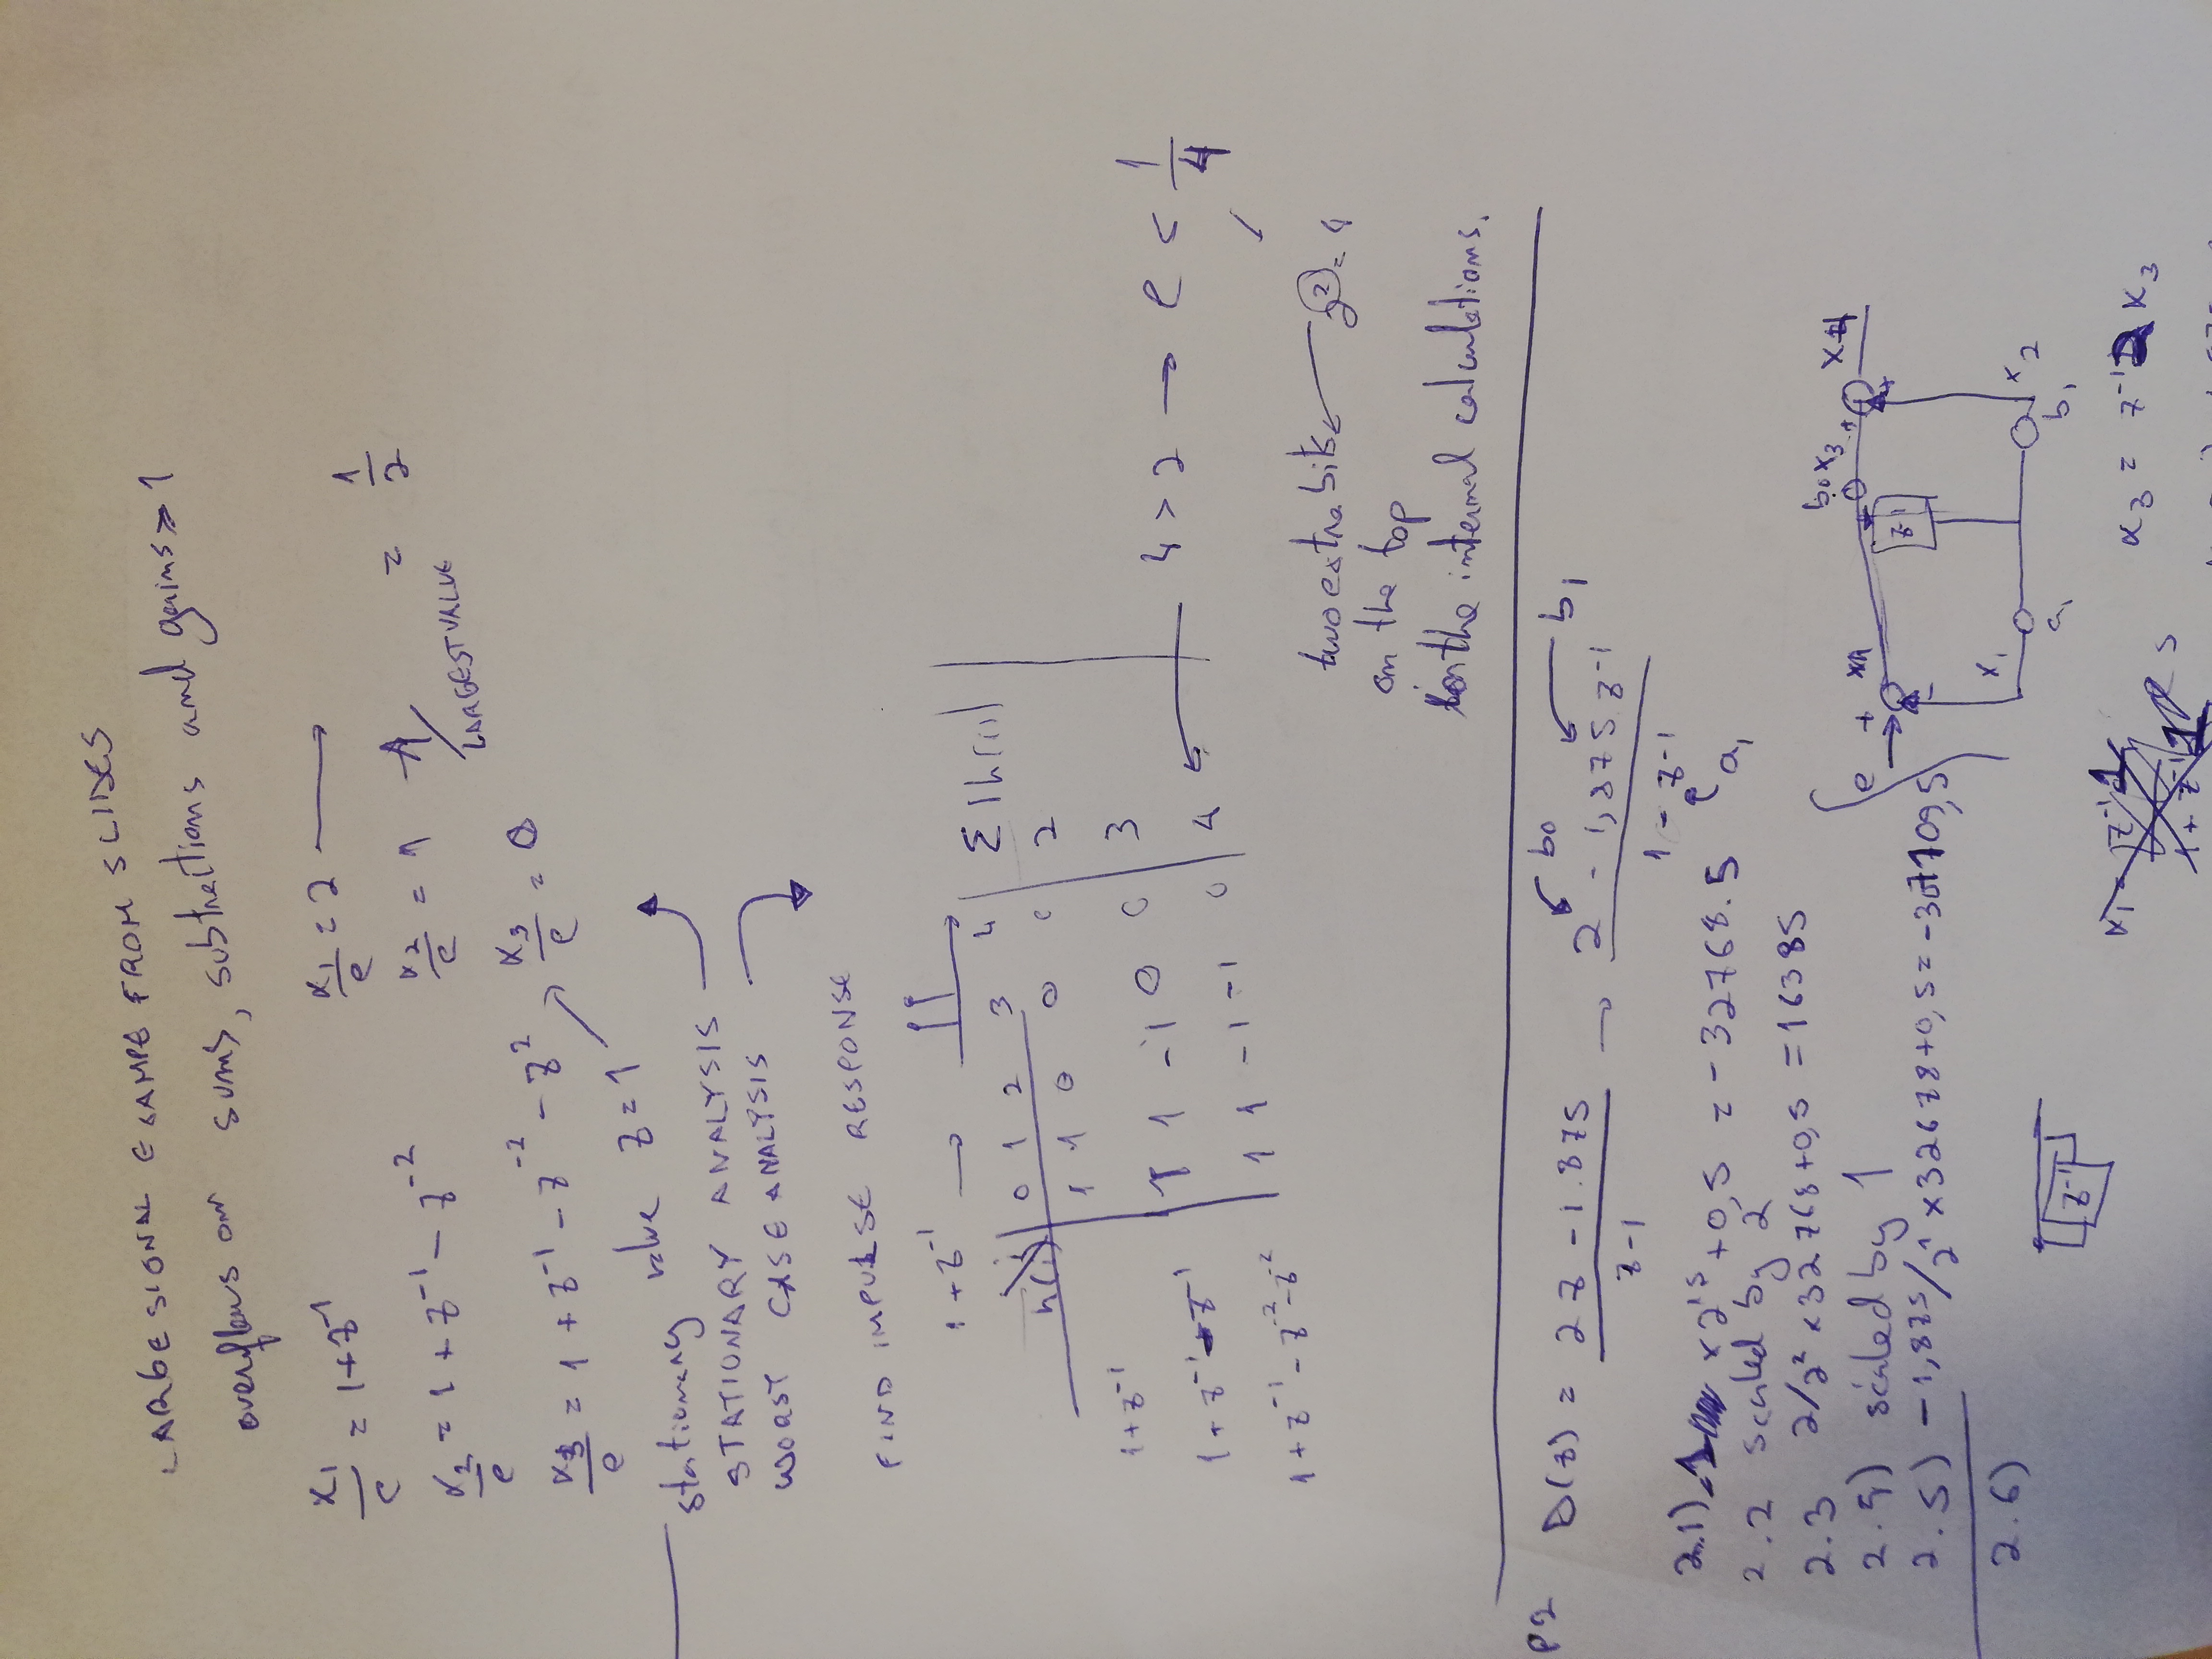 LARGE SIGNAL EXAMPE FROM SLIDES
overflows on sums, subtractions and gains > 1
x1/e = 1+z^-1
x1/e = 2 →
x2/e = 1 + z^-1 - z^-2
x2/e = 1
1/LARGEST VALUE = 1/2
x3/e = 1 + z^-1 - z^-2 - z^2
x3/e = 0
stationary value z=1
STATIONARY ANALYSIS
WORST CASE ANALYSIS
FIND IMPULSE RESPONSE
1+z^-1 →
h(i) 0 1 2 3 4 Σ|h(i)|
1+z^-1 1 1 0 0 0 2
1+z^-1-z^-1 1 1 -1 0 0 3
1+z^-1-z^-2-z^-2 1 1 -1 -1 0 4
4 > 2 → e < 1/4
two extra bits ← 2^2 = 4
on the top
for the internal calculations.
P2 D(z) = (2z - 1.875)/(z-1) → (2 - 1,875z^-1)/(1 - z^-1)
b0
b1
a1
2.1) x 2^15 + 0,5 = -32768.5
2.2 scaled by 2
2.3 2/2^2 x 32768+0,5 = 16385
2.4) scaled by 1
2.5) -1,875/2^1 x 32678+0,5 = -307109,5
2.6)
z^-1
e + - b0 x3 + x4 +
z^-1
x1 x2
a1 b1
x3 = z^-1 x3